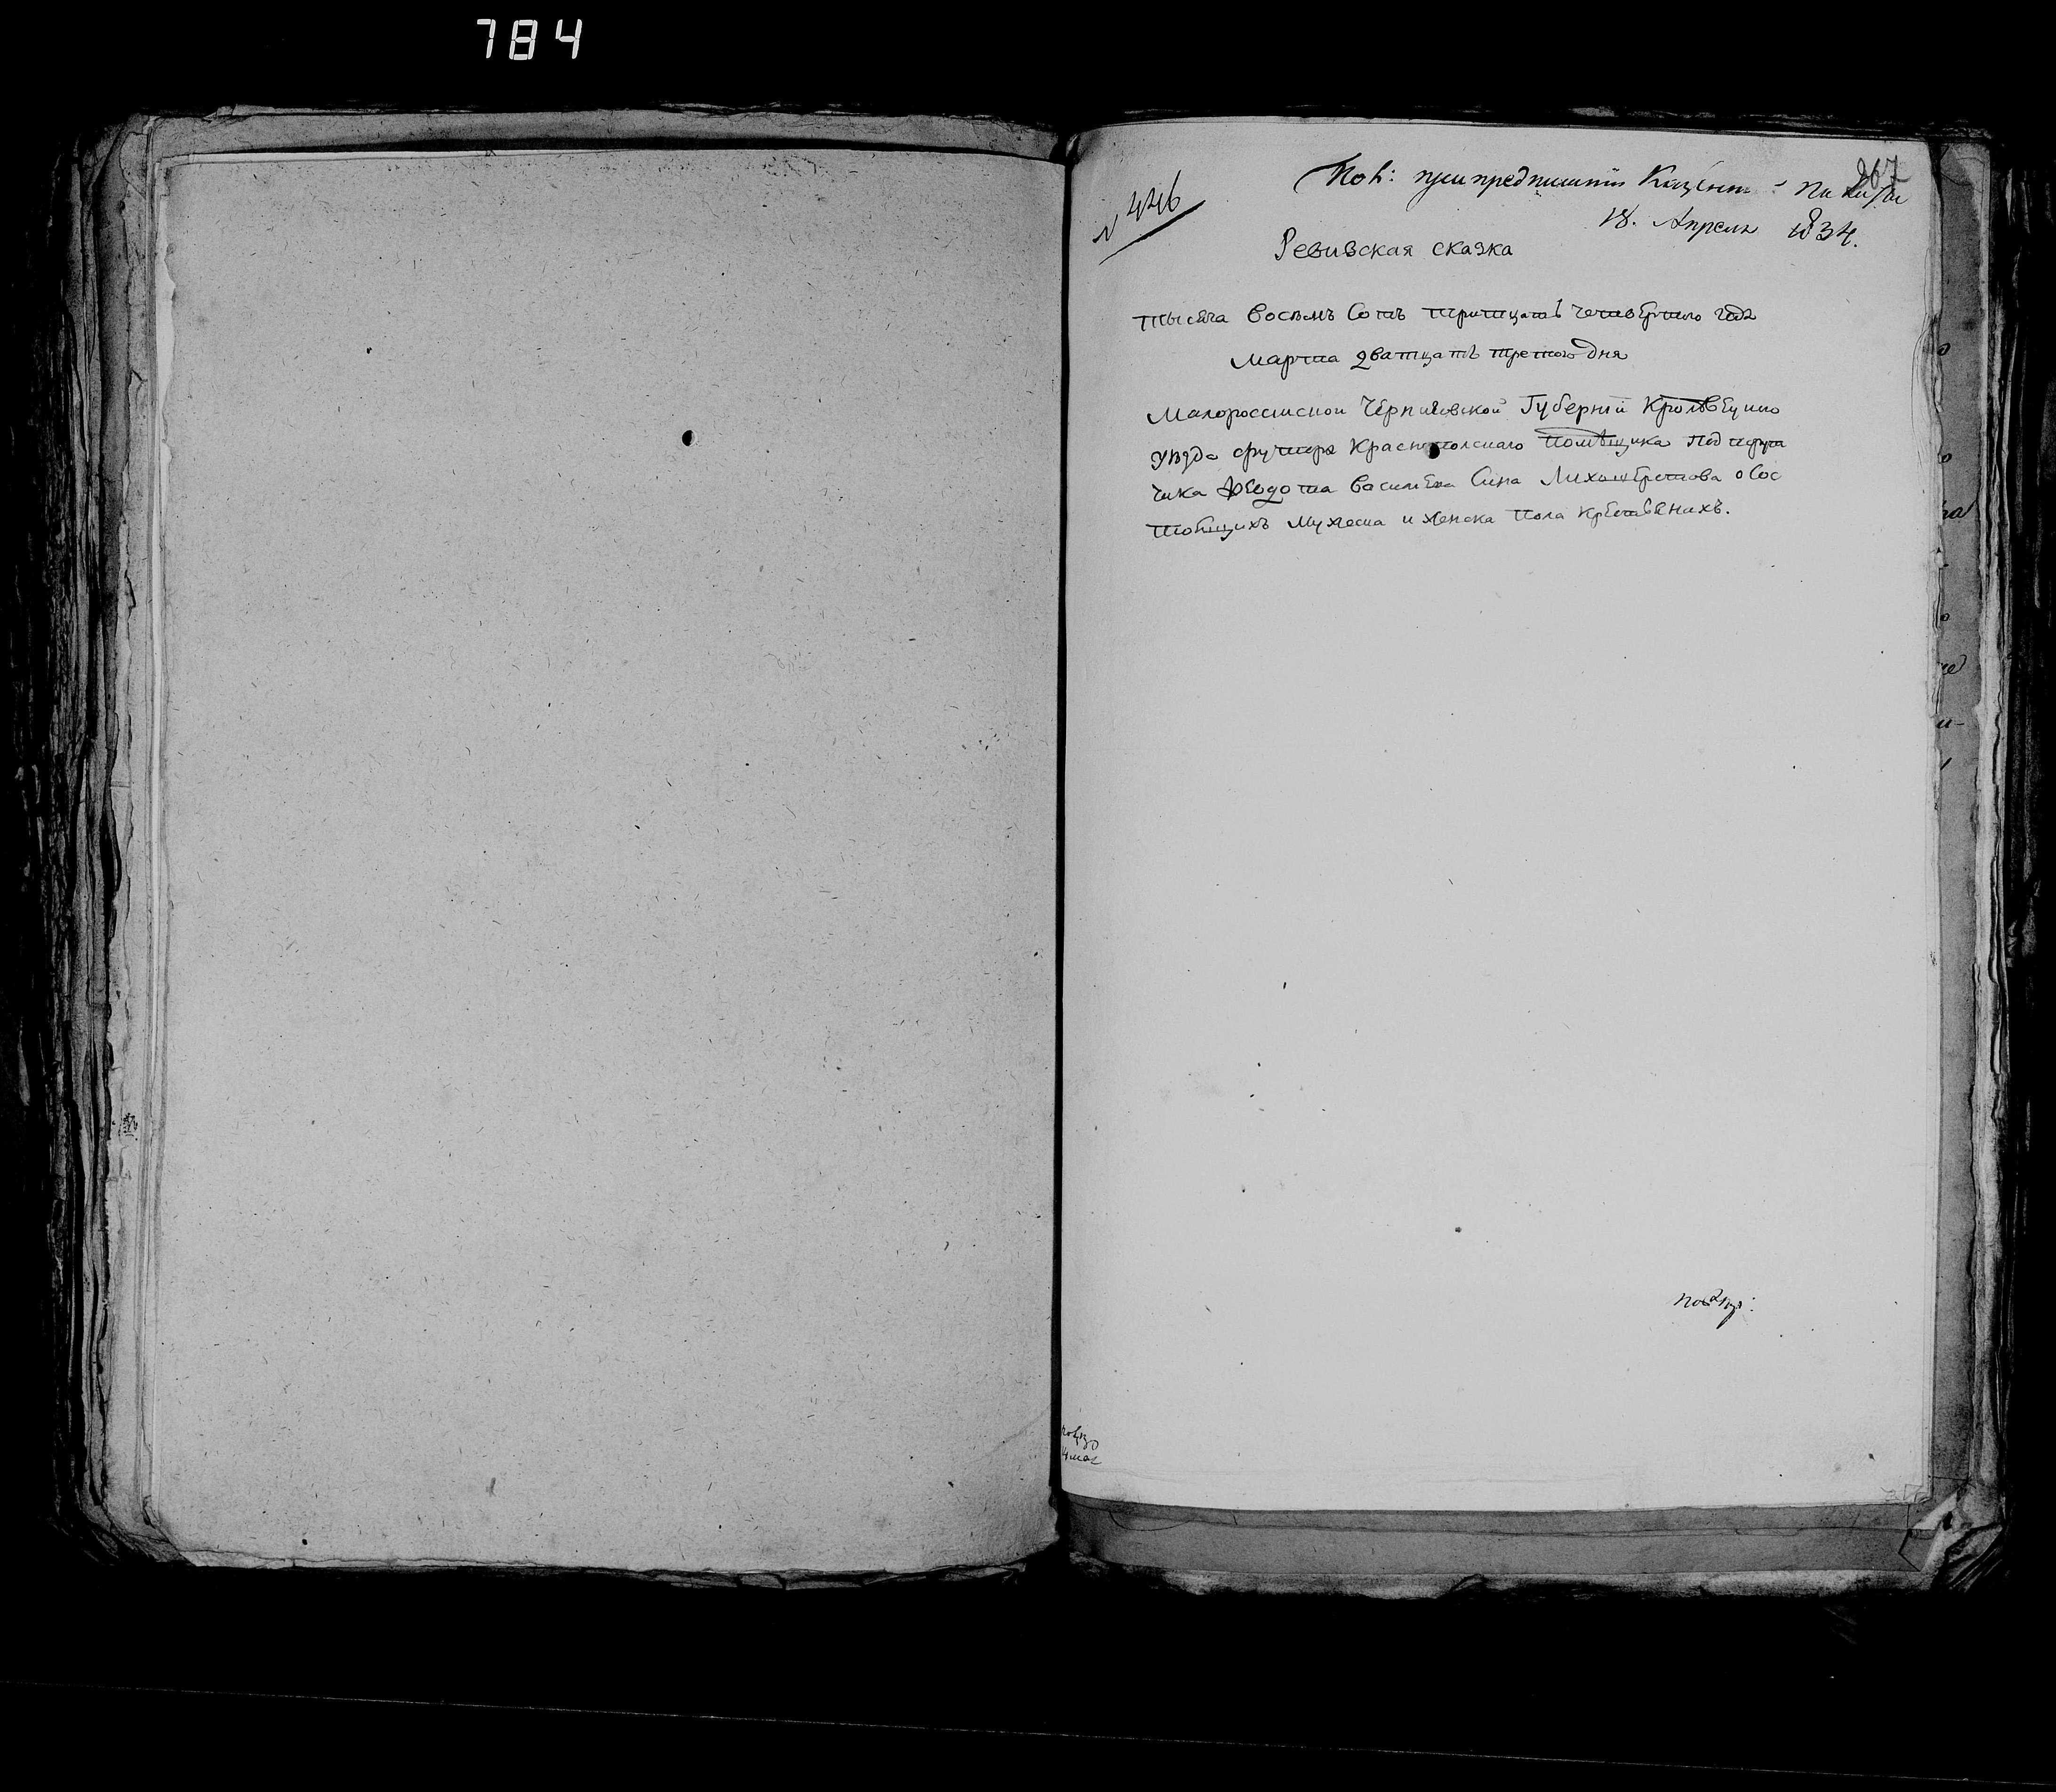 784
267
№ 446
Пов: при предписаніи
18. Апреля 1834.
Ревивская сказка
тысяча восемъ сотъ тритцать четвертого года
марта дватцать третого дня
Малоросискои Черниговской Губерніи Кролевецкого
уезда хутора Краснополскаго помѣщика подпору
чика Федота Василева сина Лихошерстова о сос
тоящихъ мужеска и женска пола крестьянахъ.